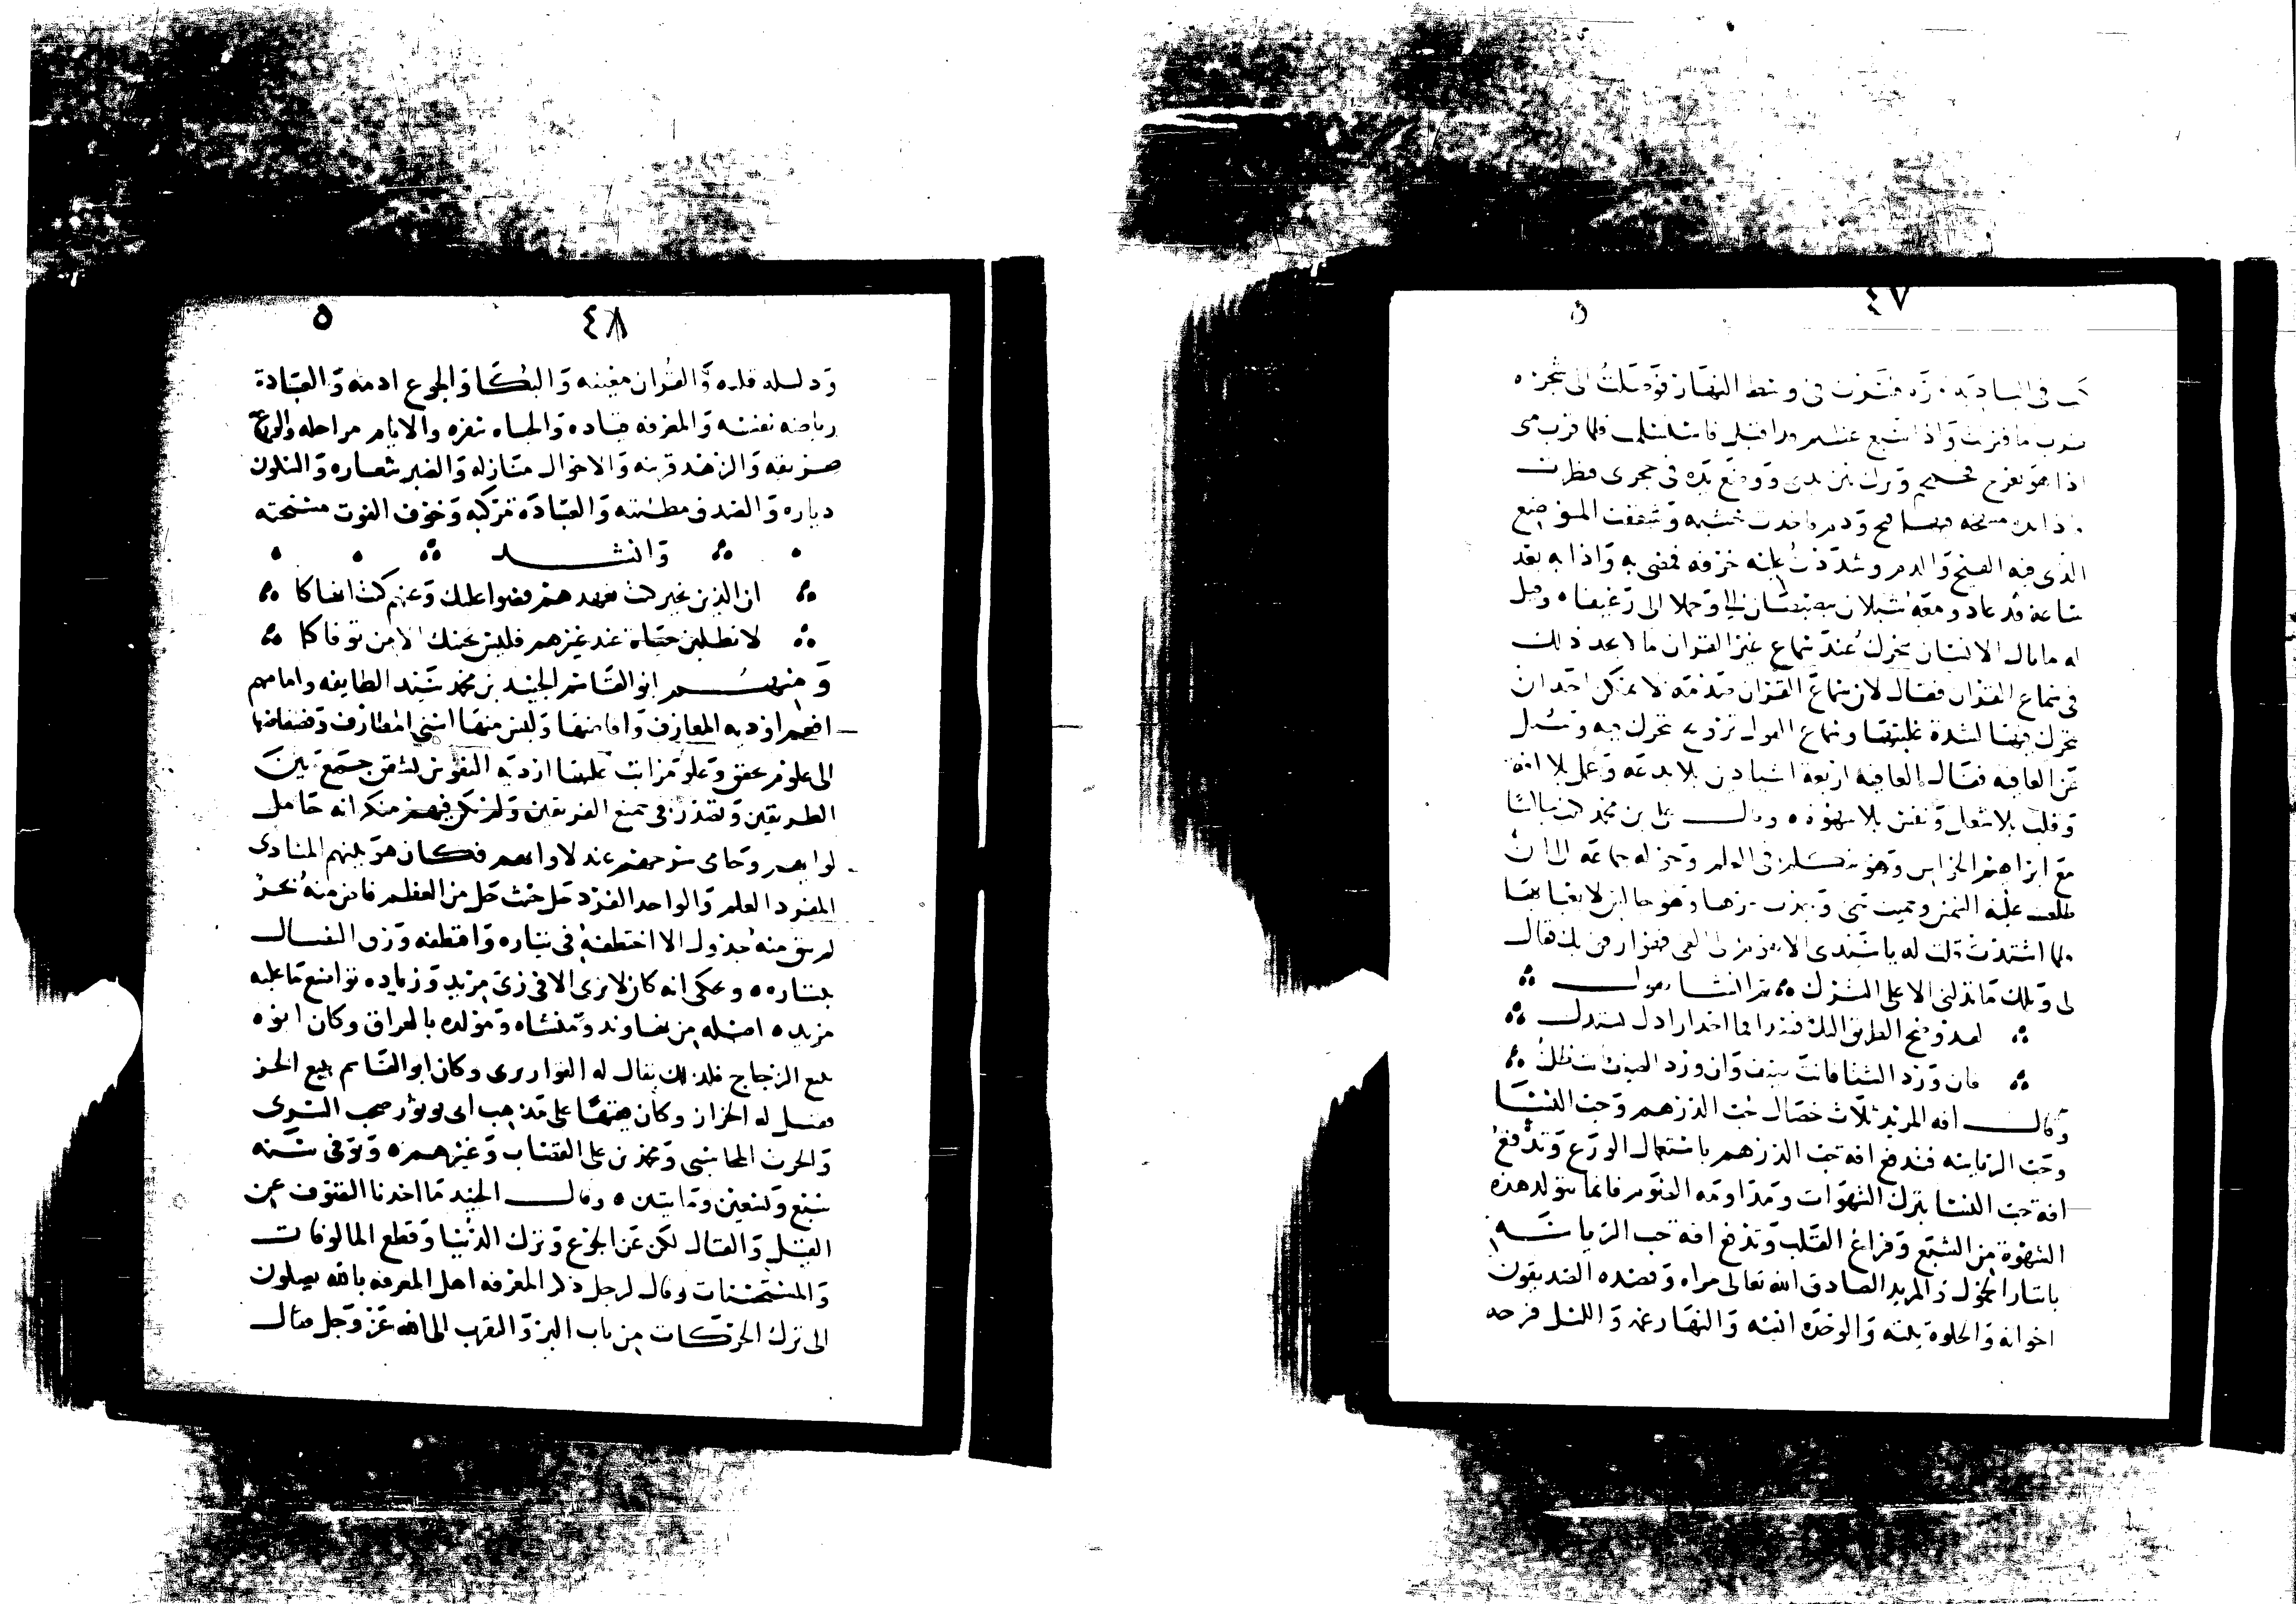 ٤٧
في البادية مرة فسرت في وسط النهار فوصلت الى شجرة
فنزلت واذا بسبع عظيم قد اقبل فاستسلمت فلما قرب مني
اذا هو يعرج فحمحم وبرك بين يدي ووضع يده في حجري فنظرت
فاذا يده منتفخة فيها قيح ودم فاخذت خشبة وشققت الموضع
الذي فيه القيح والدم وشددت عليه خرقة فمضى به واذا به بعد
ساعة قد عاد ومعه شبلان يبصبصان الي وحملا الي رغيفا ه وقيل
له ما بال الانسان يتحرك عند سماع غير القران ما لا يجد ذلك
في سماع القران فقال لان سماع القران صدمة لا يمكن احد ان
يتحرك فيها لشدة غلبتها وسماع القول ترويح يتحرك فيه وسئل
عن العافية فقال العافية اربعة اشيا دين بلا بدعة وعمل بلا افة
وقلب بلا شغل ونفس بلا شهوة ه وقال علي بن محمد كنت جالسا
مع ابراهيم الخواص وهو يتكلم في العلم وحوله جماعة الى ان
طلعت عليه الشمس وحميت حتى وجدت حرها وهو جالس لا يعبا بها
فلما اشتدت قلت له يا سيدي الا تقوم من الشمس الى الفي فهو ارفق بك فقال
لي ويلك ما تدلني الا على الشرك ثم انشا يقول
لقد وضح الطريق اليك قصدا فما احد ارادك يستدل
فان ورد الشتا فانت صيف وان ورد المصيف فانت ظل
وقال افة المريد ثلاث خصال حب الدرهم وحب النسا
وحب الرياسة فتدفع افة حب الدرهم باستعمال الورع وتدفع
افة حب النسا بترك الشهوات ومداومة الصوم فانما يتولد هذه
الشهوة من الشبع وفراغ القلب وتدفع افة حب الرياسة
بايثار الخمول والمريد الصادق الله تعالى مراده وقصده الصديقون
اخوانه والخلوة بيته والوحدة انسه والنهار غمه والليل فرحه
٤٨
ودليله قلبه والقران معينه والبكا والجوع ادمه والعبادة
رياضة نفسه والمعرفة قياده والحياة سفره والايام مراحله والورع
طريقه والزهد قرينه والاحوال منازله والصبر شعاره والسكون
دثاره والصدق مطيته والعبادة مركبه وخوف الفوت مسبحته
وانشد
ان الذين بخير كنت تعهدهم قضوا عليك وعنهم كنت انهاكا
لا تطلبن حياة عند غيرهم فليس يحييك الا من توفاكا
ومنهم ابو القاسم الجنيد بن محمد سيد الطايفة وامامهم
افعم اودية المعارف وافاضها ولبس منها اسنى المطارف وفضفاضها
الى علو في تحقق وعلو مراتب عليها اردية النفوس لشقق جمع بين
الطريقين وتصدر في جميع الفريقين ولم يكن فيهم منكر انه حامل
لوايهم وحامي سرحهم عند لاوايهم فكان هو بينهم المنادى
المفرد العلم والواحد الفرد حل حيث حل من العظم فاض منه بحر
لم يبق منه جدول الا اختطفه في تياره واقتطفه وزق الفسال
بتياره ه وحكى انه كان لا يرى الا في زي مريد وزيادة تواضع ما عليه
مزيد ه اصله من نهاوند ومنشاه ومولده بالعراق وكان ابوه
يبيع الزجاج فلذلك يقال له القواريري وكان ابو القاسم يبيع الخز
فقيل له الخزاز وكان فقيها على مذهب ابي ثور صحب السري
والحرث المحاسبي ومحمد بن علي القصاب وغيرهم ه وتوفي سنة
سبع وتسعين ومايتين ه وقال الجنيد ما اخذنا التصوف عن
القيل والقال لكن عن الجوع وترك الدنيا وقطع المالوفات
والمستحسنات وقال لرجل ذكر المعرفة اهل المعرفة بالله يصلون
الى ترك الحركات من باب البر والتقرب الى الله عز وجل فقال